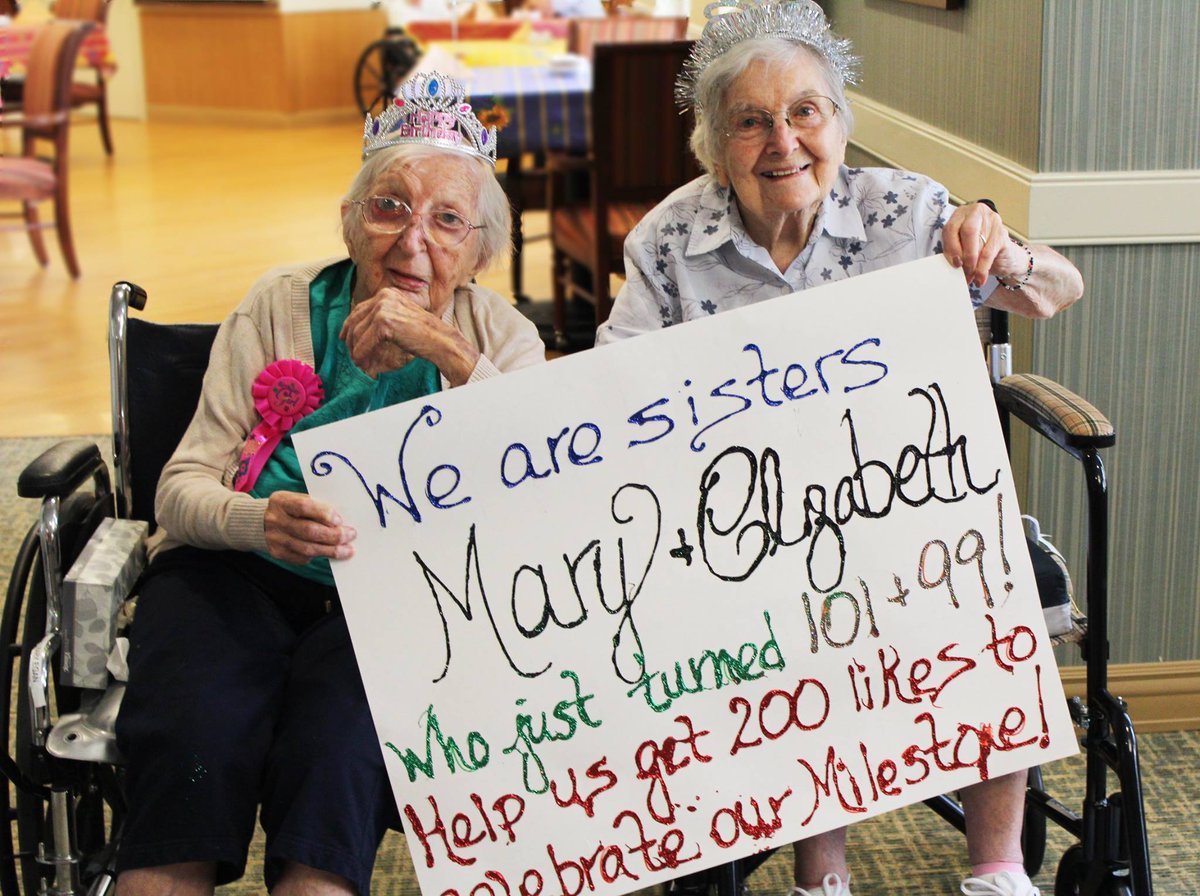 Happy
Birthday
We are sisters
Mary + Elizabeth
who just turned 101 + 99!
Help us get 200 likes to
celebrate our Milestone!